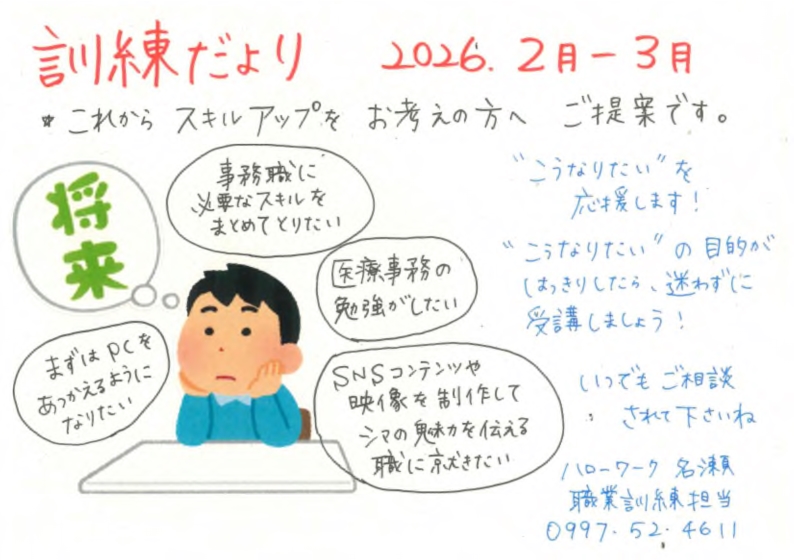 訓練だより 2026.2月-3月
*これから スキルアップを お考えの方へ ご提案です。
将来
事務職に
必要なスキルを
まとめてとりたい
医療事務の
勉強がしたい
まずはPCを
あつかえるように
なりたい
SNSコンテンツや
映像を制作して
シマの魅力を伝える
職に就きたい
"こうなりたい"を
応援します!
"こうなりたい"の目的が
はっきりしたら、迷わずに
受講しましょう!
いつでもご相談
されて下さいね
ハローワーク 名瀬
職業訓練担当
0997-52-4611